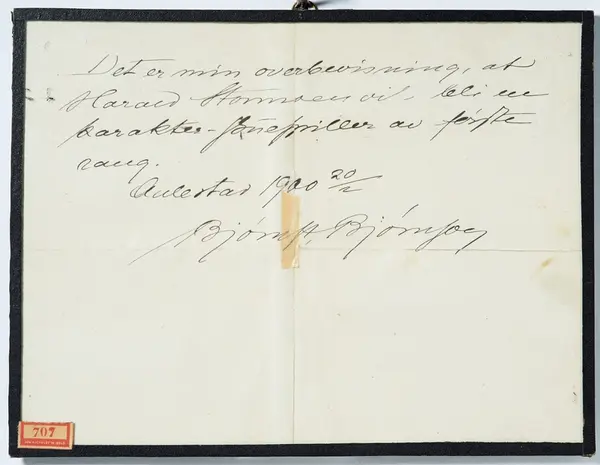 Det er min overbevisning, at
Harald Stormoen vil bli en
karakter-skuespiller av første
rang.
Aulestad 1900 20/2
Bjørnst. Bjørnson
707